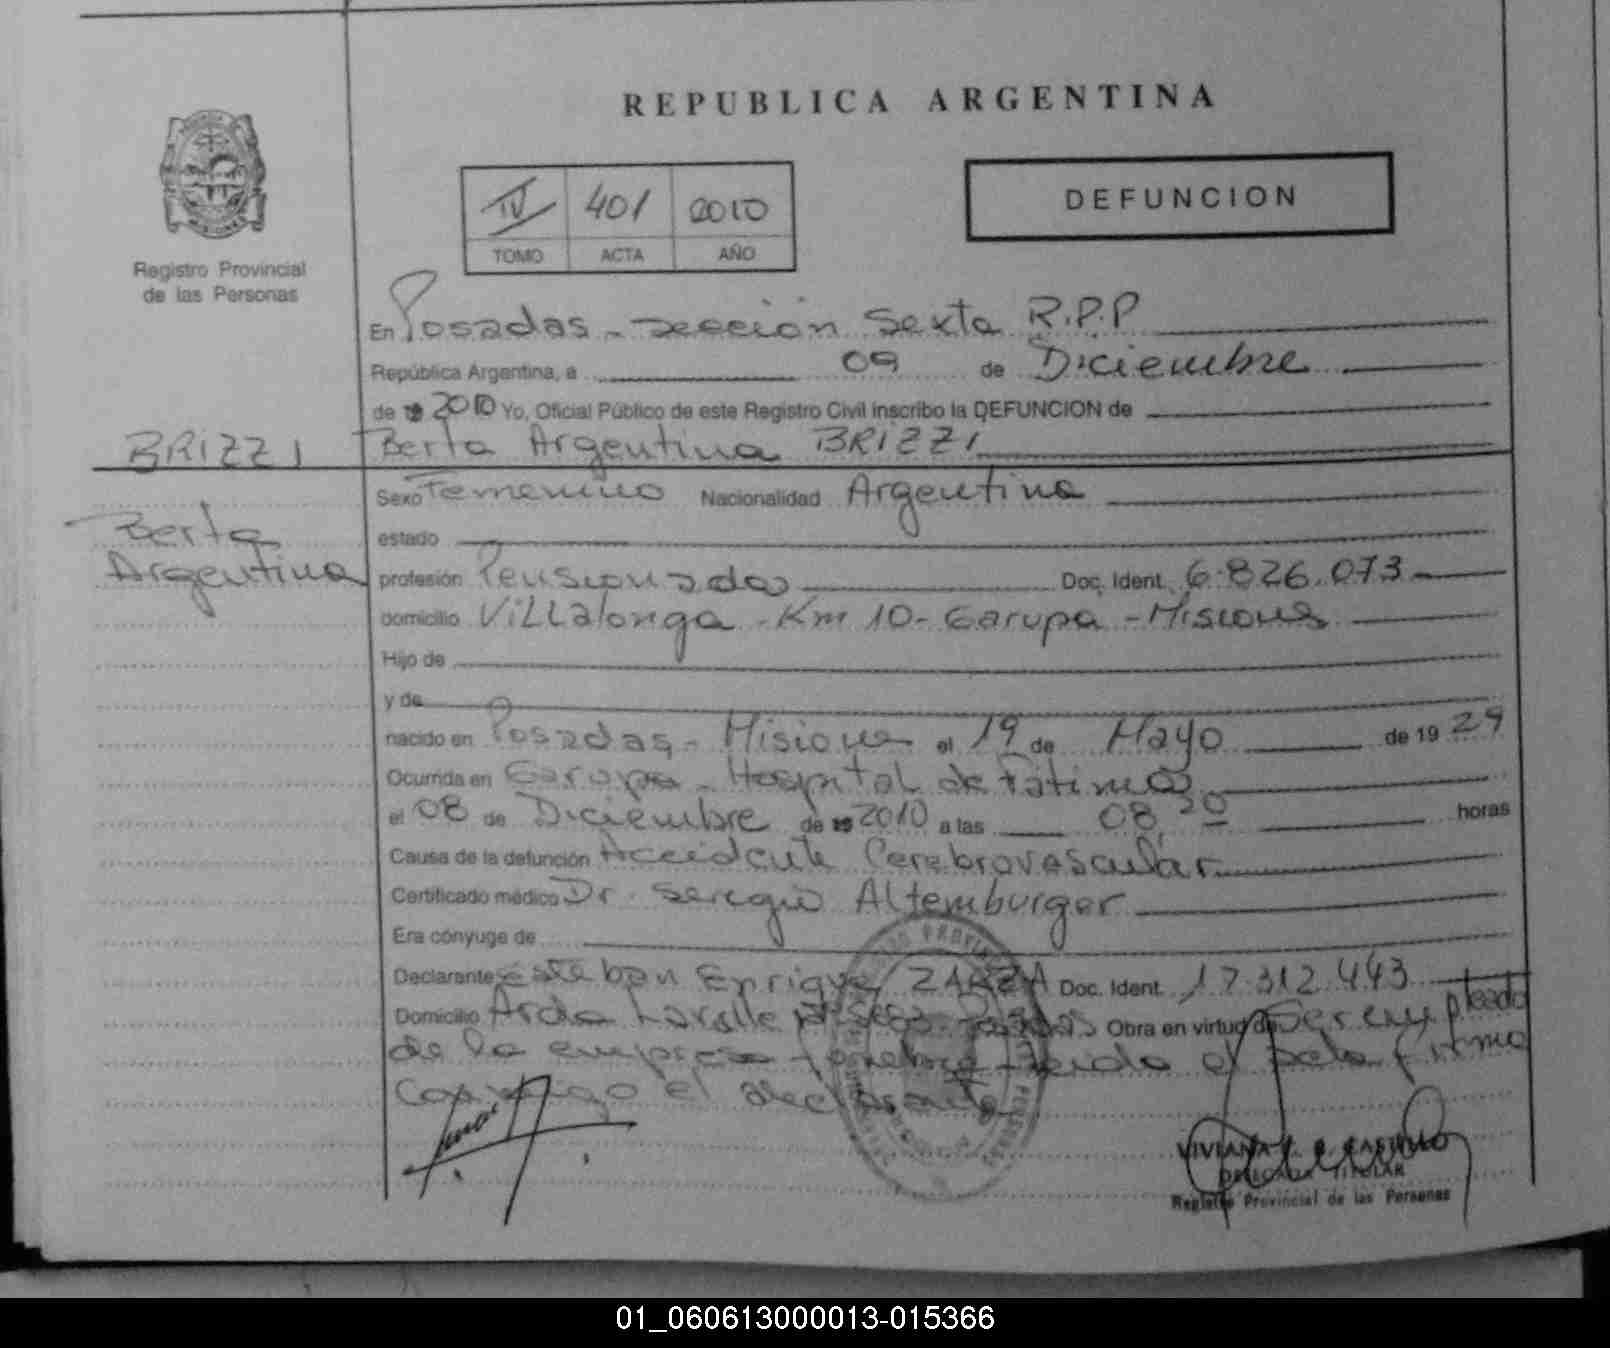 REPUBLICA ARGENTINA
Registro Provincial
de las Personas
IV 401 2010
TOMO ACTA AÑO
DEFUNCION
En Posadas - sección Sexta R.P.P
República Argentina, a 09 de Diciembre
de 2010 Yo, Oficial Público de este Registro Civil inscribo la DEFUNCION de
BRIZZI
Berta Argentina BRIZZI
Berta
Argentina
Sexo Femenino Nacionalidad Argentina
estado
profesión Pensionada Doc. Ident. 6.826.073
domicilio Villalonga - Km 10 - Garupa - Misiones
Hijo de
y de
nacido en Posadas - Misiones el 19 de Mayo de 19 29
Ocurrida en Garupa - Hospital de Fátima
el 08 de Diciembre de 2010 a las 08,20 horas
Causa de la defunción Accidente Cerebrovascular
Certificado médico Dr. Seregio Altemburger
Era cónyuge de
Declarante Esteban Enrique ZARZA Doc. Ident. 17.312.443
Domicilio Avda Lavalle Obra en virtud de Ser empleado
de la empresa funebre leida el acta firma
conmigo el declarante
VIVIANA CASTILLO
DELEGADA TITULAR
Registro Provincial de las Personas
01_060613000013-015366